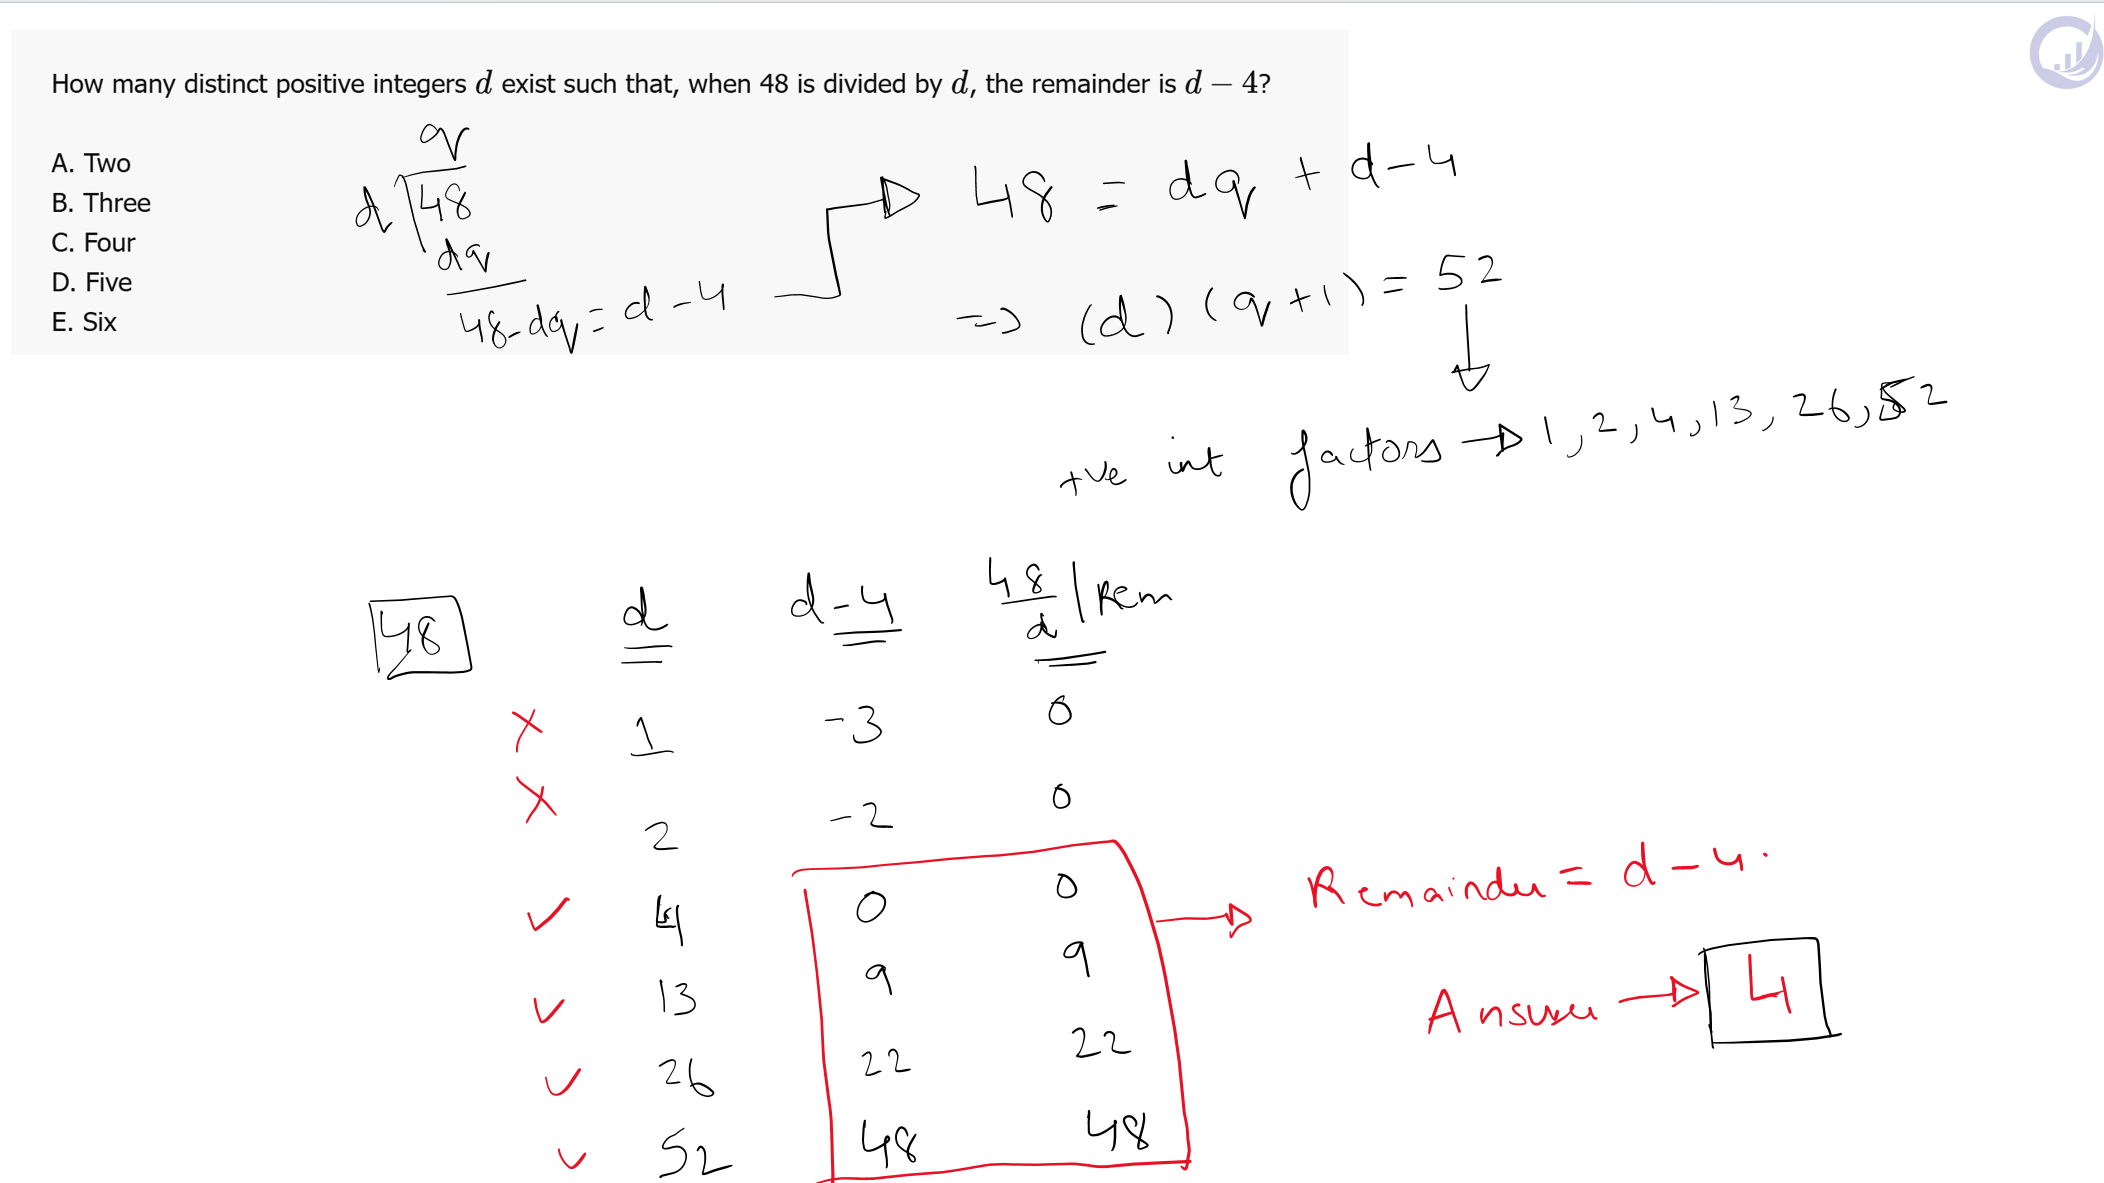 How many distinct positive integers d exist such that, when 48 is divided by d, the remainder is d − 4?
A. Two
B. Three
C. Four
D. Five
E. Six
q
d 48
dq
48-dq = d-4
48 = dq + d-4
=> (d) (q+1) = 52
+ve int factors → 1, 2, 4, 13, 26, 52
48
d d-4 48/d | Rem
× 1 -3 0
× 2 -2 0
✓ 4 0 0
✓ 13 9 9
✓ 26 22 22
✓ 52 48 48
Remainder = d-4.
Answer → 4